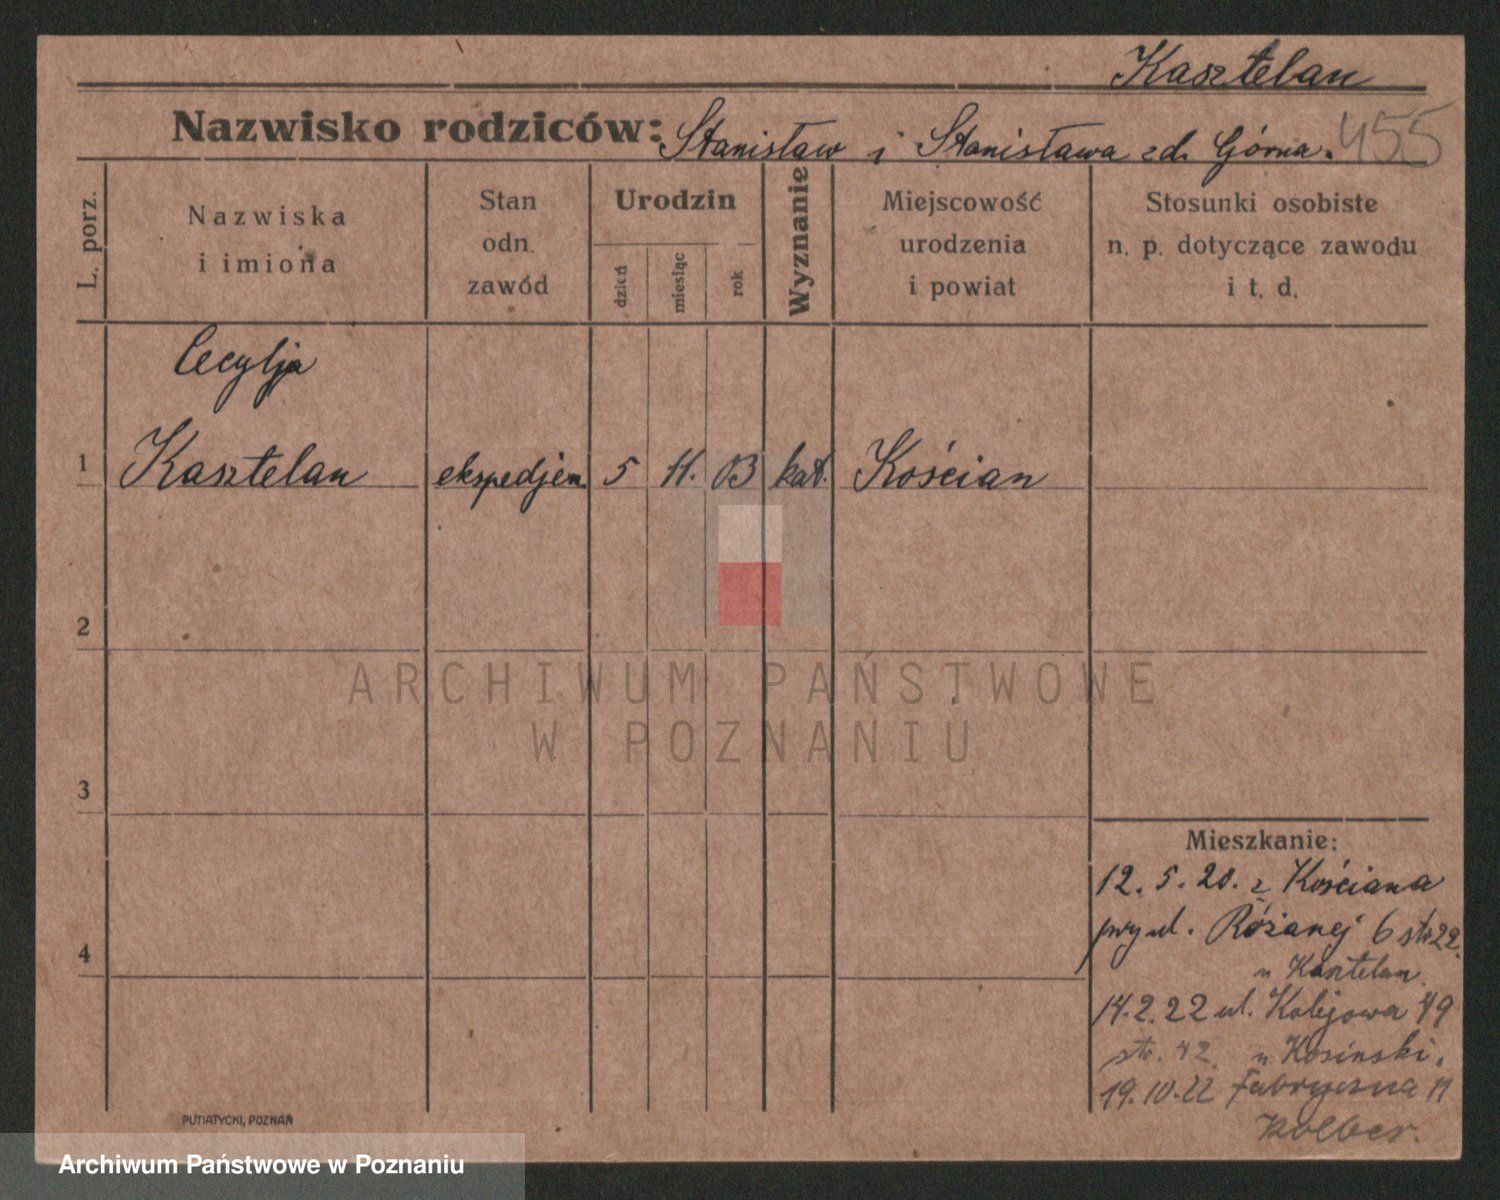 Kasztelan
Nazwisko rodziców: Stanisław i Stanisława zd. Górna. 455
L. porz.
Nazwiska
i imiona
Stan
odn.
zawód
Urodzin
dzień
miesiąc
rok
Wyznanie
Miejscowość
urodzenia
i powiat
Stosunki osobiste
n. p. dotyczące zawodu
i t. d.
Cecylja
1 Kasztelan ekspedjen. 5 11. 03 kat. Kościan
2
3
4
Mieszkanie:
12. 5. 20. z Kościana
przy ul. Różanej 6 str 22.
u Kasztelan.
14.2.22 ul. Kolejowa 49
str. 42. u Kosinski.
19.10.22 Fabryczna 11
Kolber.
PUTIATYCKI, POZNAŃ
ARCHIWUM PAŃSTWOWE
W POZNANIU
Archiwum Państwowe w Poznaniu